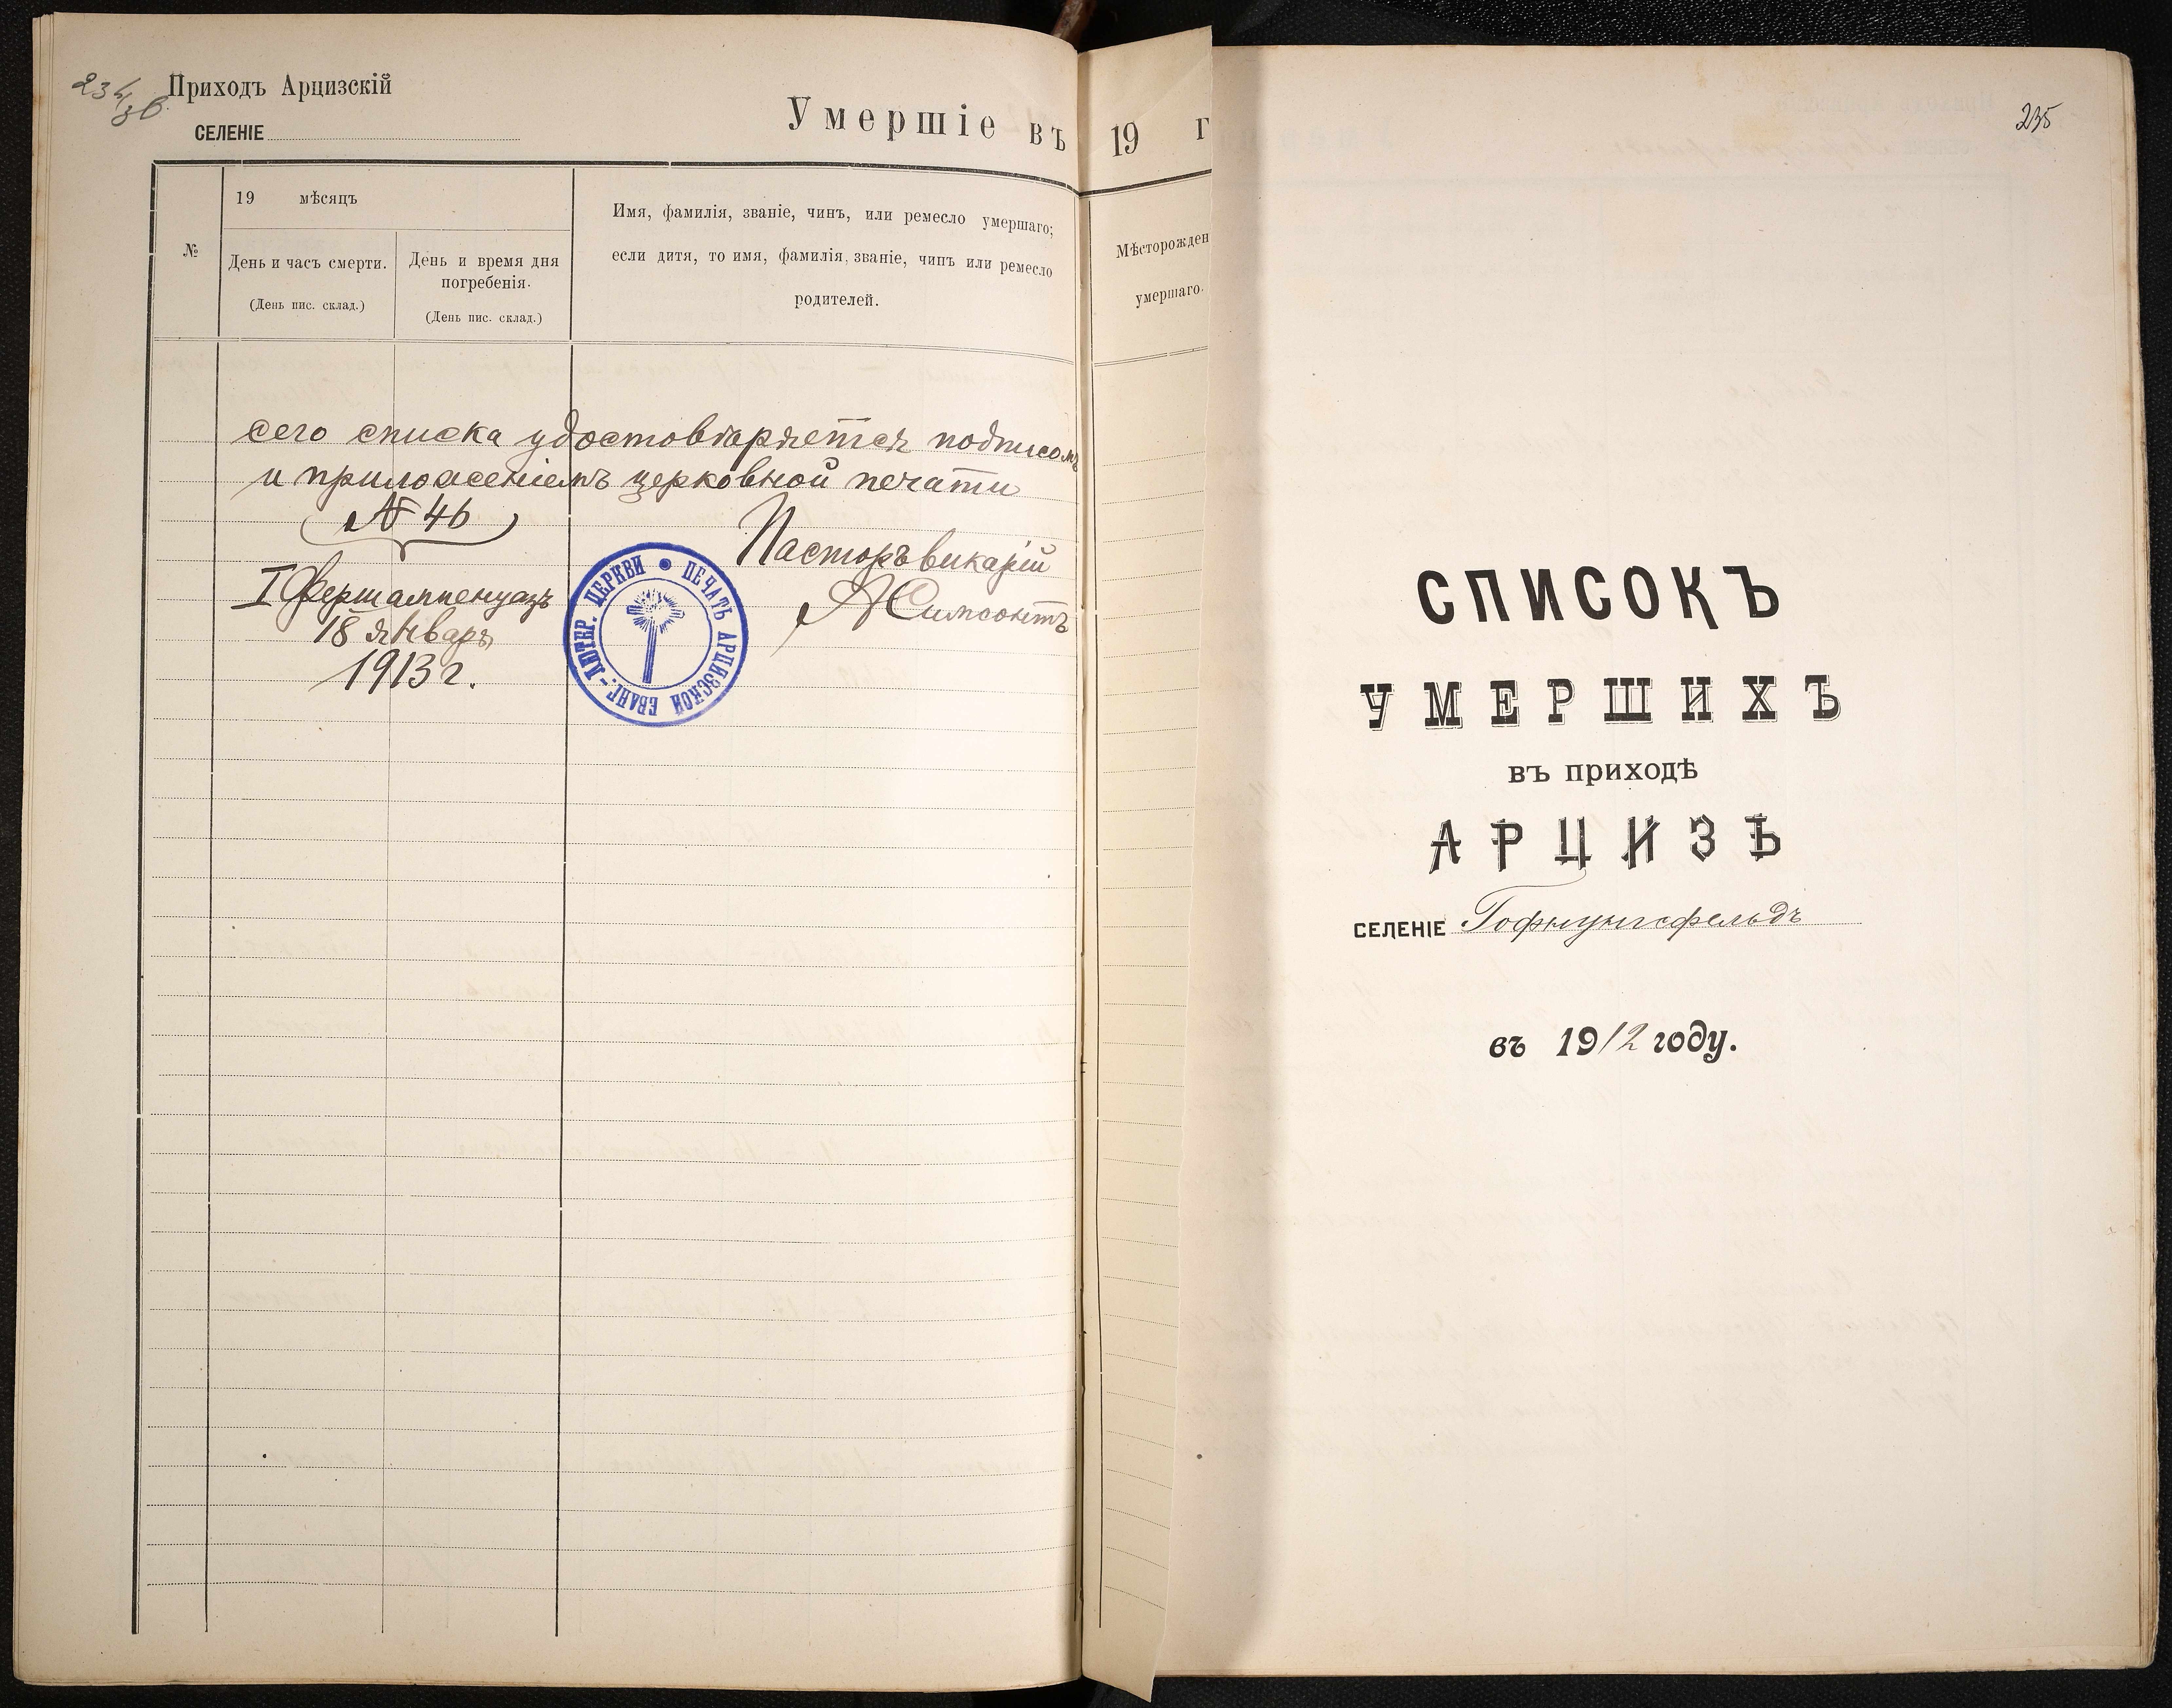 234/зв.
Приходъ Арцизскій
СЕЛЕНІЕ
Умершіе въ 19 г
№
19 мѣсяцъ
День и часъ смерти.
(День пис. склад.)
День и время дня
погребенія.
(День пис. склад.)
Имя, фамилія, званіе, чинъ, или ремесло умершаго;
если дитя, то имя, фамилія, званіе, чинъ или ремесло
родителей.
Мѣсторожден
умершаго.
сего списка удостовѣряется подписомъ
и приложеніемъ церковной печати
№ 46
Пасторъ викарій
І Фершампенуазъ
18 январь
1913 г.
ПЕЧАТЬ АРЦИЗСКОЙ ЕВАНГ.-ЛЮТЕР. ЦЕРКВИ
235
СПИСОКЪ
УМЕРШИХЪ
въ приходѣ
АРЦИЗѢ
СЕЛЕНІЕ Гофнунгсфельдъ
въ 1912 году.